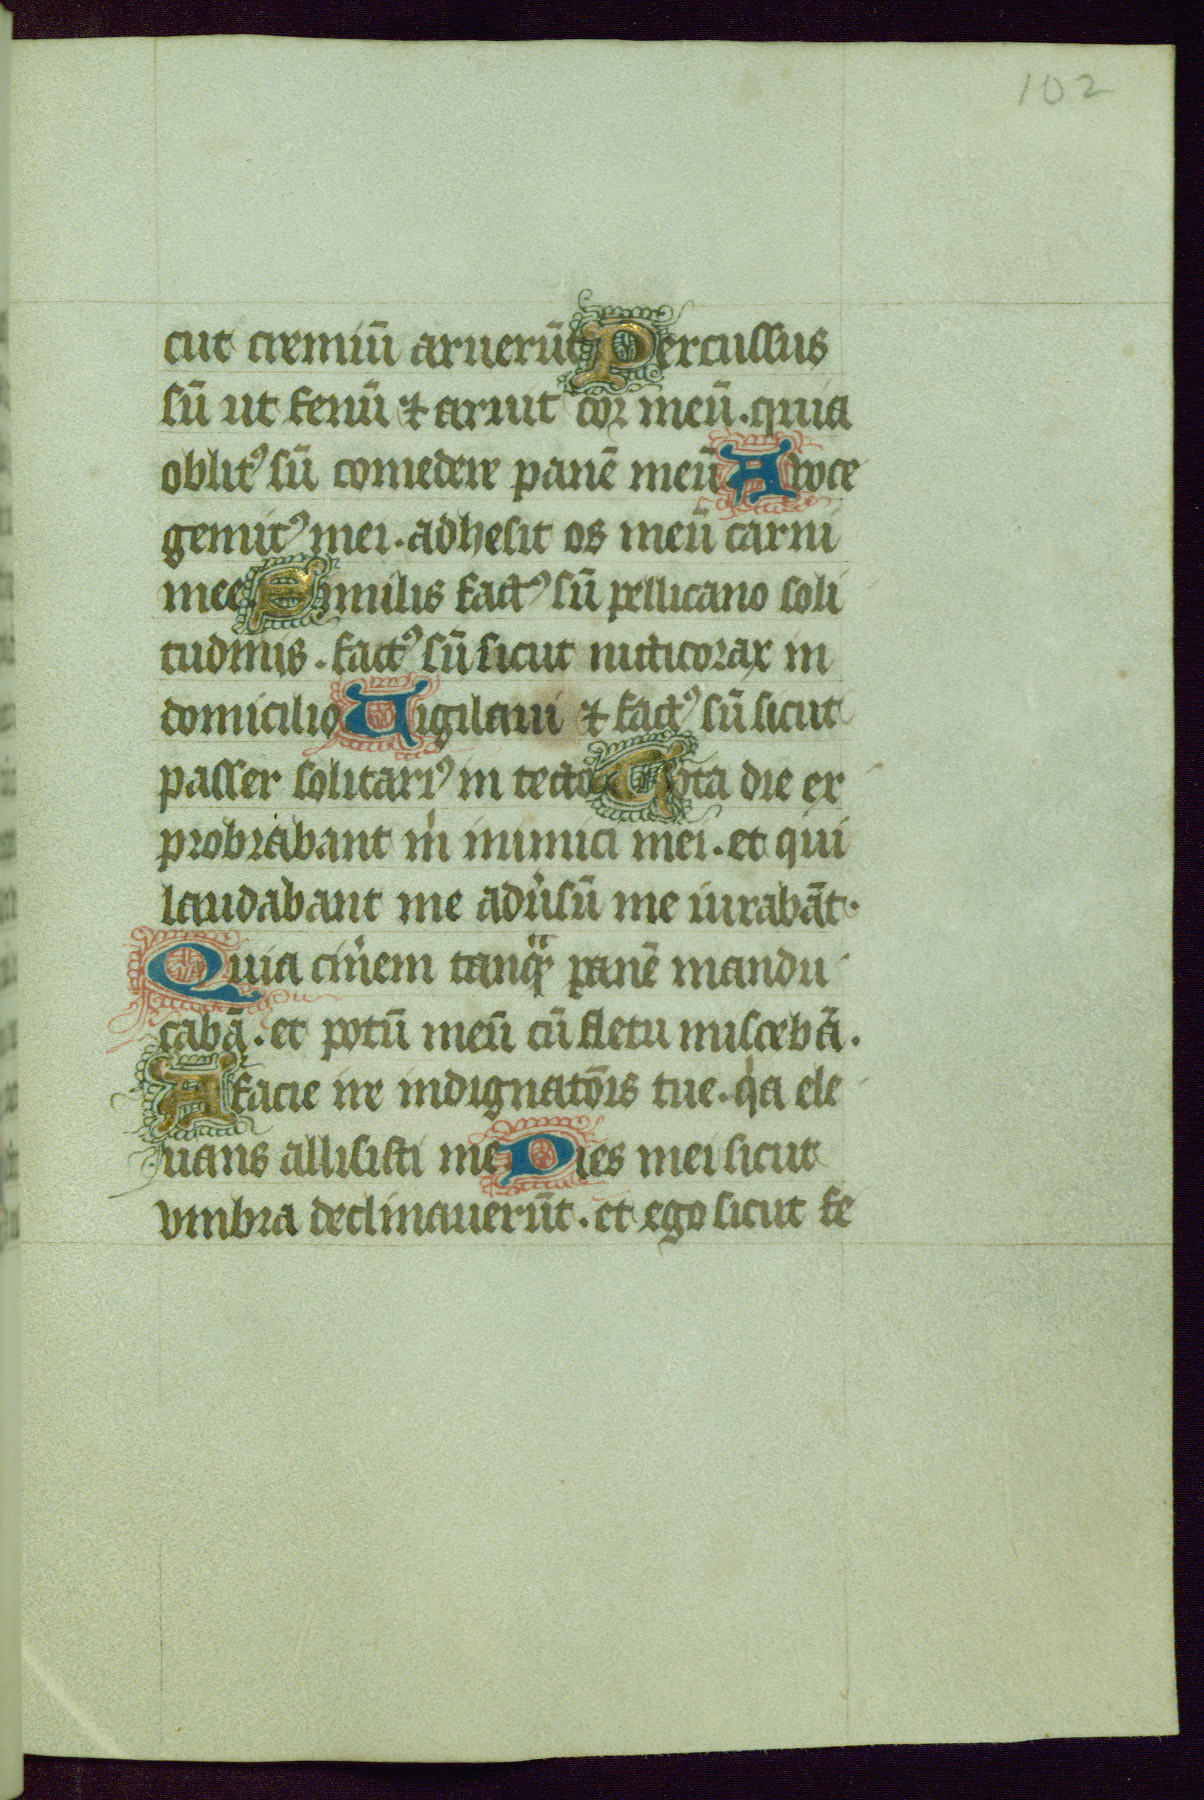 102
cut cremiū aruerūt Percussus
sū ut fenū ⁊ aruit cor meū. quia
oblitꝰ sū comedere panē meū A voce
gemitꝰ mei. adhesit os meū carni
mee. Similis factꝰ sū pellicano soli
tudinis. factꝰ sū sicut nicticorax in
domicilio Uigilaui ⁊ factꝰ sū sicut
passer solitariꝰ in tecto Tota die ex
probrabant m̍ inimici mei. et qui
laudabant me adu̍sū me iurabāt.
Quia cin̍em tanqᷓ panē mandu
cabā. et potū meū cū fletu miscebā.
A facie ire indignatōis tue. q̍a ele
uans allisisti me Dies mei sicut
vmbra declinauerūt. et ego sicut fe